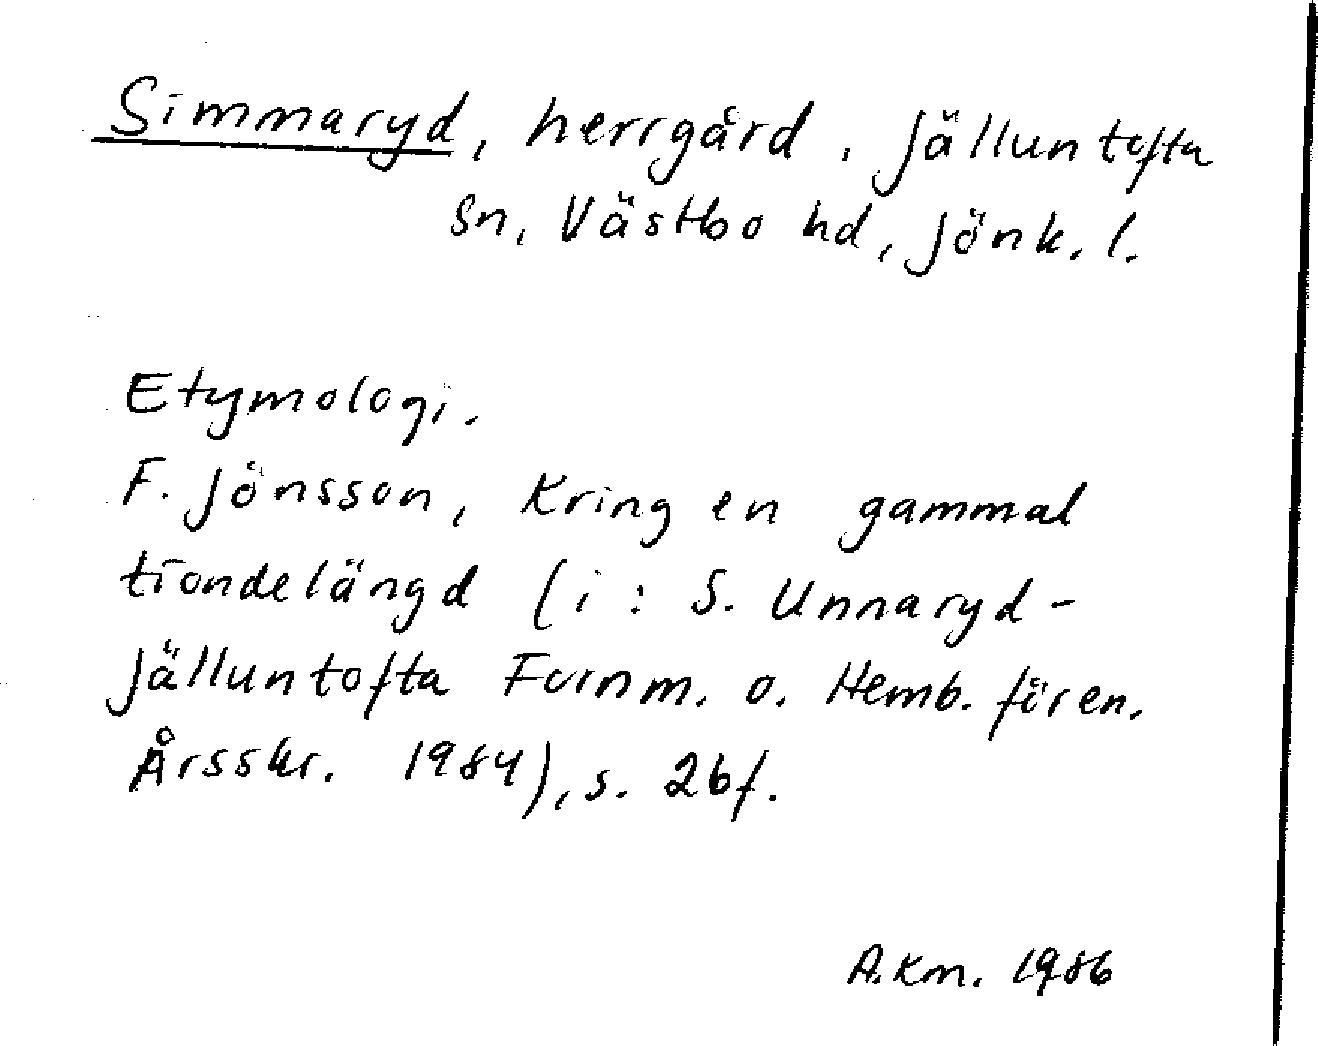 Simmaryd, herrgård, Jälluntofta
sn, Västbo hd, Jönk. l.
Etymologi.
F. Jönsson, Kring en gammal
tiondelängd (i: S. Unnaryd-
Jälluntofta Fornm. o. Hemb. fören.
Årsskr. 1984), s. 26f.
A.Km. 1986